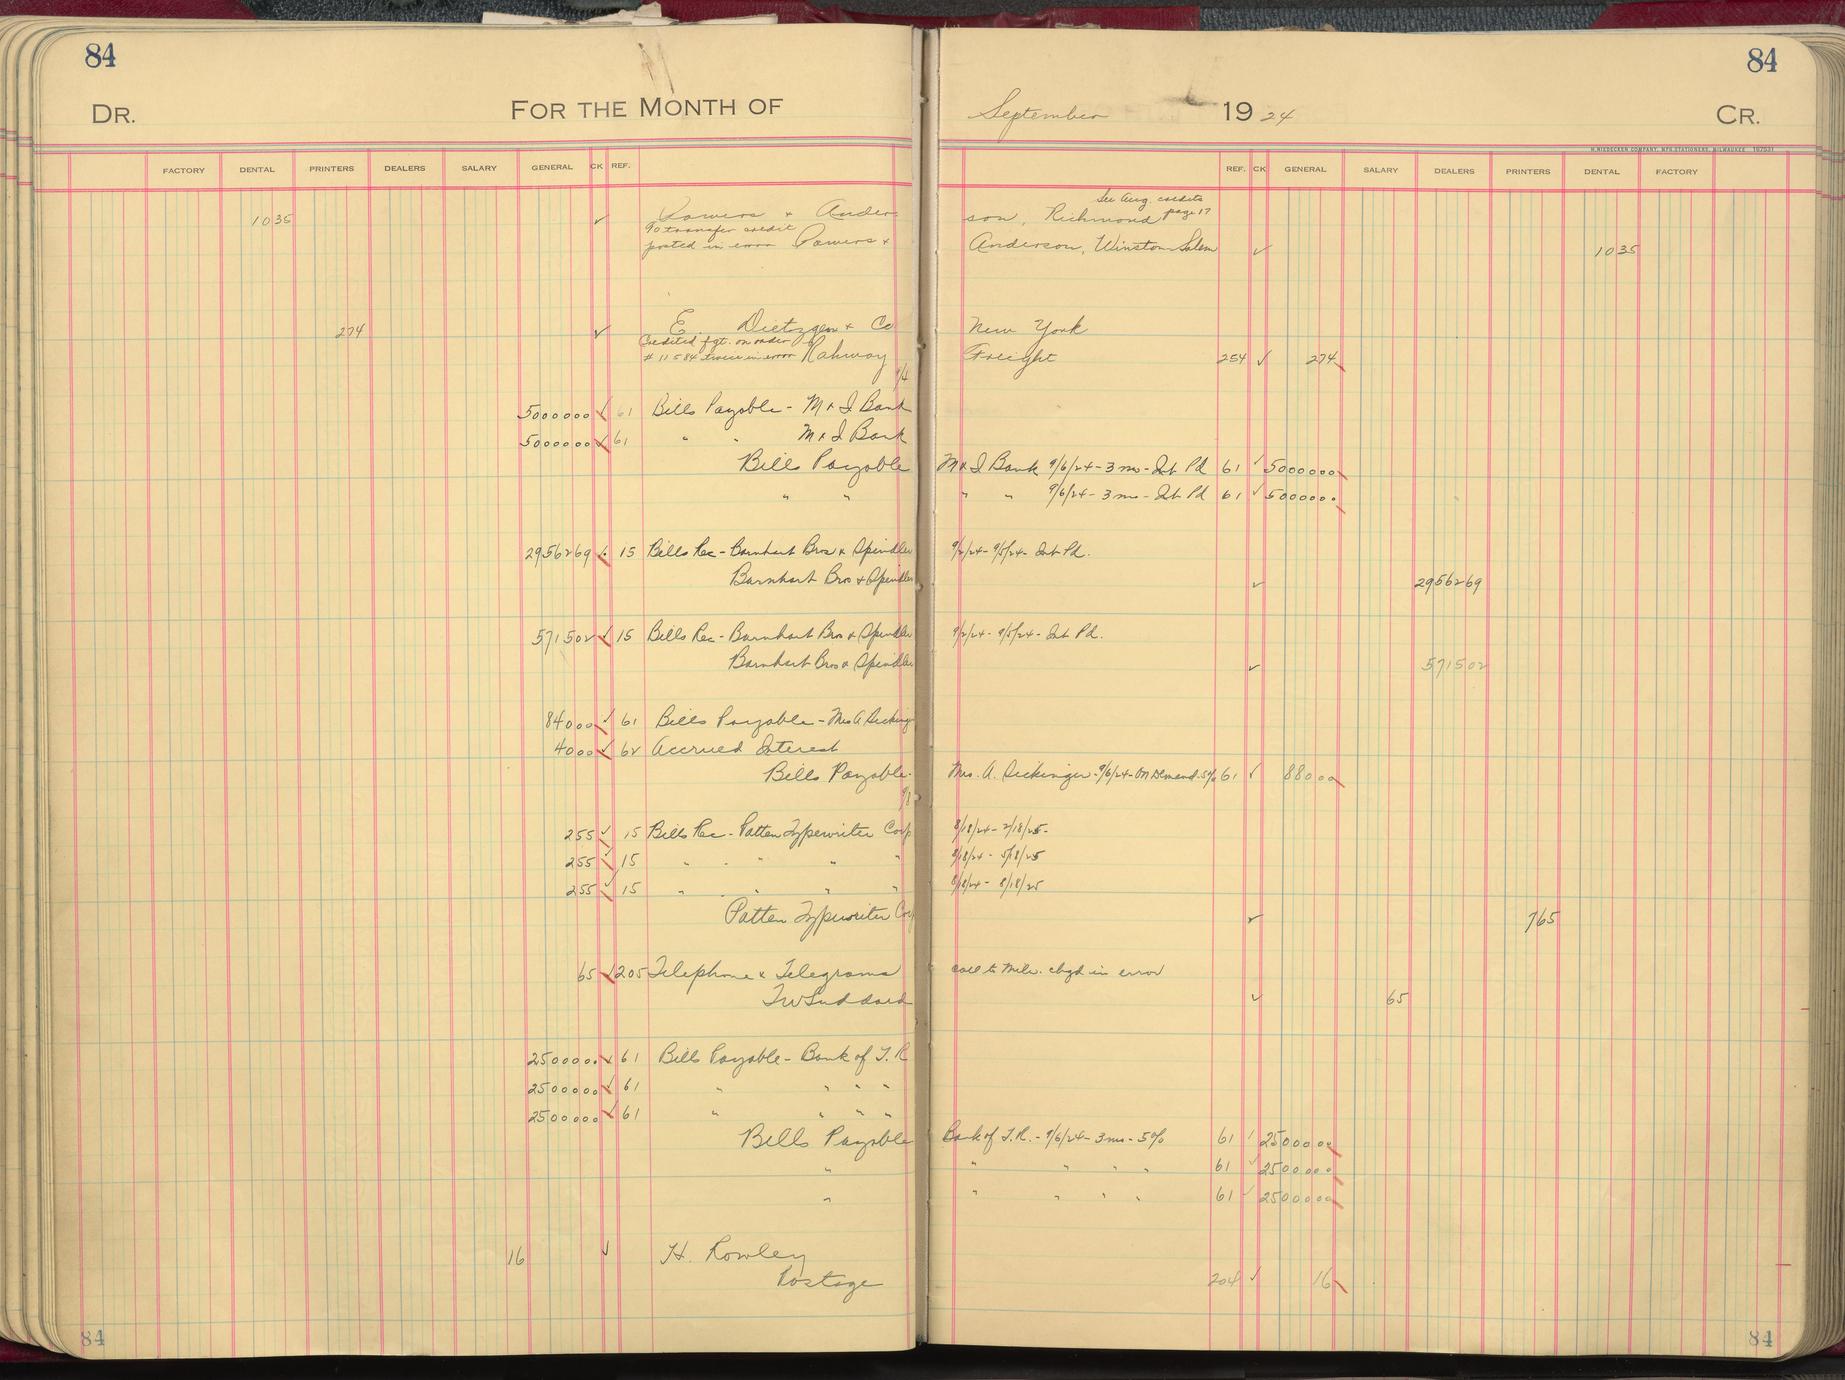 84 84
DR. FOR THE MONTH OF September 19 24 CR.
H. NIEDECKEN COMPANY, MFG. STATIONERS, MILWAUKEE 197531
FACTORY DENTAL PRINTERS DEALERS SALARY GENERAL CK REF. REF. CK GENERAL SALARY DEALERS PRINTERS DENTAL FACTORY
See Aug. credits
1035 ✓ Powers & Anderson, Richmond page 17
To transfer credit
posted in error Powers & Anderson, Winston Salem ✓ 1035
274 ✓ E. Dietzgen & Co New York
Credited fgt. on order
# 11584 twice in error Rahway Freight 254 ✓ 274
9/4
5000000 ✓ 61 Bills Payable - M & I Bank
5000000 ✓ 61 " " M & I Bank
Bills Payable M & I Bank 9/6/24 - 3 mo - Int Pd 61 ✓ 5000000
" " " " 9/6/24 - 3 mo - Int Pd 61 ✓ 5000000
2956269 ✓ 15 Bills Rec - Barnhart Bros & Spindler 9/2/24 - 9/5/24 - Int Pd.
Barnhart Bros & Spindler ✓ 2956269
571502 ✓ 15 Bills Rec - Barnhart Bros & Spindler 9/2/24 - 9/5/24 - Int Pd.
Barnhart Bros & Spindler ✓ 571502
84000 ✓ 61 Bills Payable - Mrs A
4000 ✓ 62 Accrued Interest
Bills Payable - Mrs. A. 9/6/24 - On Demand - 5% 61 ✓ 88000
255 ✓ 15 Bills Rec - Patten Typewriter Corp 8/18/24 - 2/18/25 -
255 ✓ 15 " " " " 8/18/24 - 5/18/25
255 ✓ 15 " " " " 8/18/24 - 8/18/25
Patten Typewriter Corp ✓ 765
65 ✓ 205 Telephone & Telegrams call to Milw. chgd in error
TW Suddard ✓ 65
2500000 ✓ 61 Bills Payable - Bank of T. R
2500000 ✓ 61 " " " "
2500000 ✓ 61 " " " "
Bills Payable Bank of T.R. - 9/6/24 - 3 mo - 5% 61 ✓ 2500000
" " " " " 61 ✓ 2500000
" " " " " 61 ✓ 2500000
16 ✓ H. Rowley
Postage 204 ✓ 16
84 84